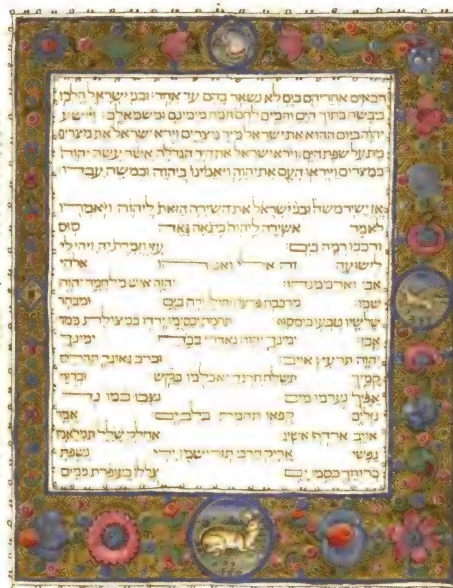 הבאים אחריהם בים לא נשאר בהם עד אחד: ובני ישראל הלכו
ביבשה בתוך הים והמים להם חמה מימינם ומשמאלם: ויושע
יהוה ביום ההוא את ישראל מיד מצרים וירא ישראל את מצרים
מת על שפת הים: וירא ישראל את היד הגדלה אשר עשה יהוה
במצרים וייראו העם את יהוה ויאמינו ביהוה ובמשה עבדו
אז ישיר משה ובני ישראל את השירה הזאת ליהוה ויאמרו
לאמר אשירה ליהוה כי גאה גאה סוס
ורכבו רמה בים: עזי וזמרת יה ויהי לי
לישועה זה אלי ואנוהו אלהי
אבי וארממנהו: יהוה איש מלחמה יהוה
שמו: מרכבת פרעה וחילו ירה בים ומבחר
שלשיו טבעו בים סוף: תהמת יכסימו ירדו במצולת כמו
אבן: ימינך יהוה נאדרי בכח ימינך
יהוה תרעץ אויב: וברב גאונך תהרס
קמיך תשלח חרנך יאכלמו כקש: וברוח
אפיך נערמו מים נצבו כמו נד
נזלים קפאו תהמת בלב ים: אמר
אויב ארדף אשיג אחלק שלל תמלאמו
נפשי אריק חרבי תורישמו ידי: נשפת
ברוחך כסמו ים צללו כעופרת במים